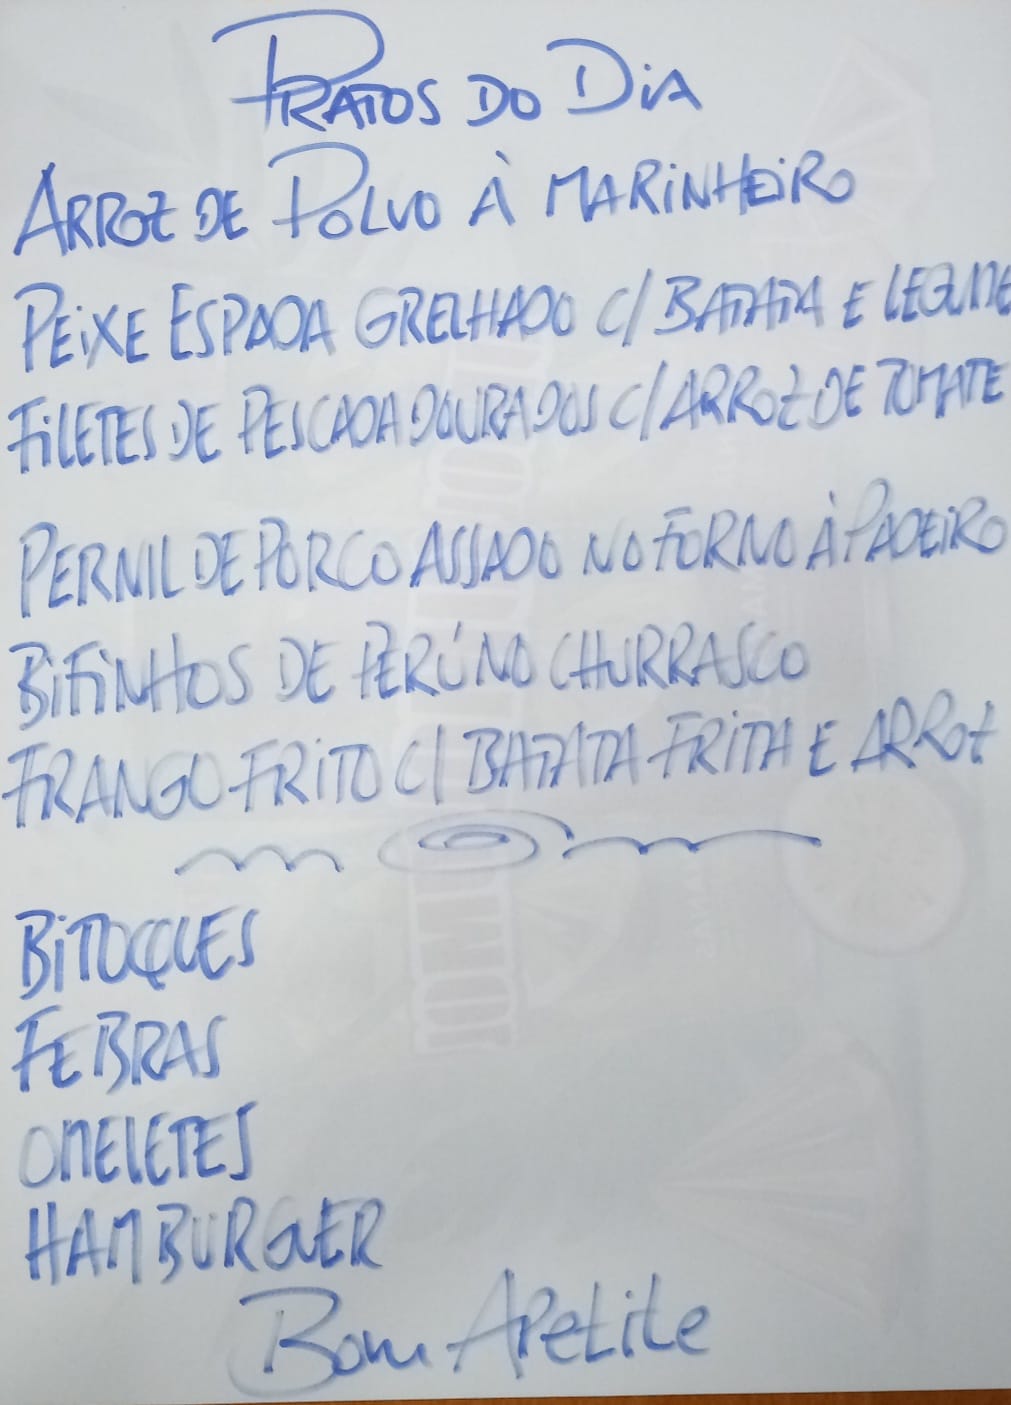 PRATOS DO DIA
ARROZ DE POLVO À MARINHEIRO
PEIXE ESPADA GRELHADO C/ BATATA E LEGUME
FILETES DE PESCADA DOURADOS C/ ARROZ DE TOMATE
PERNIL DE PORCO ASSADO NO FORNO À PADEIRO
BIFINHOS DE PERÚ NO CHURRASCO
FRANGO FRITO C/ BATATA FRITA E ARROZ
BITOQUES
FEBRAS
OMELETES
HAMBURGUER
Bom Apetite